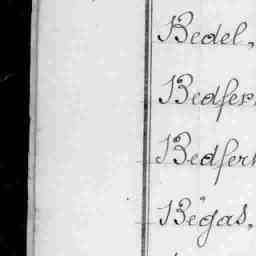 Bedel,
Bedfer
Bedfer
Bégas,